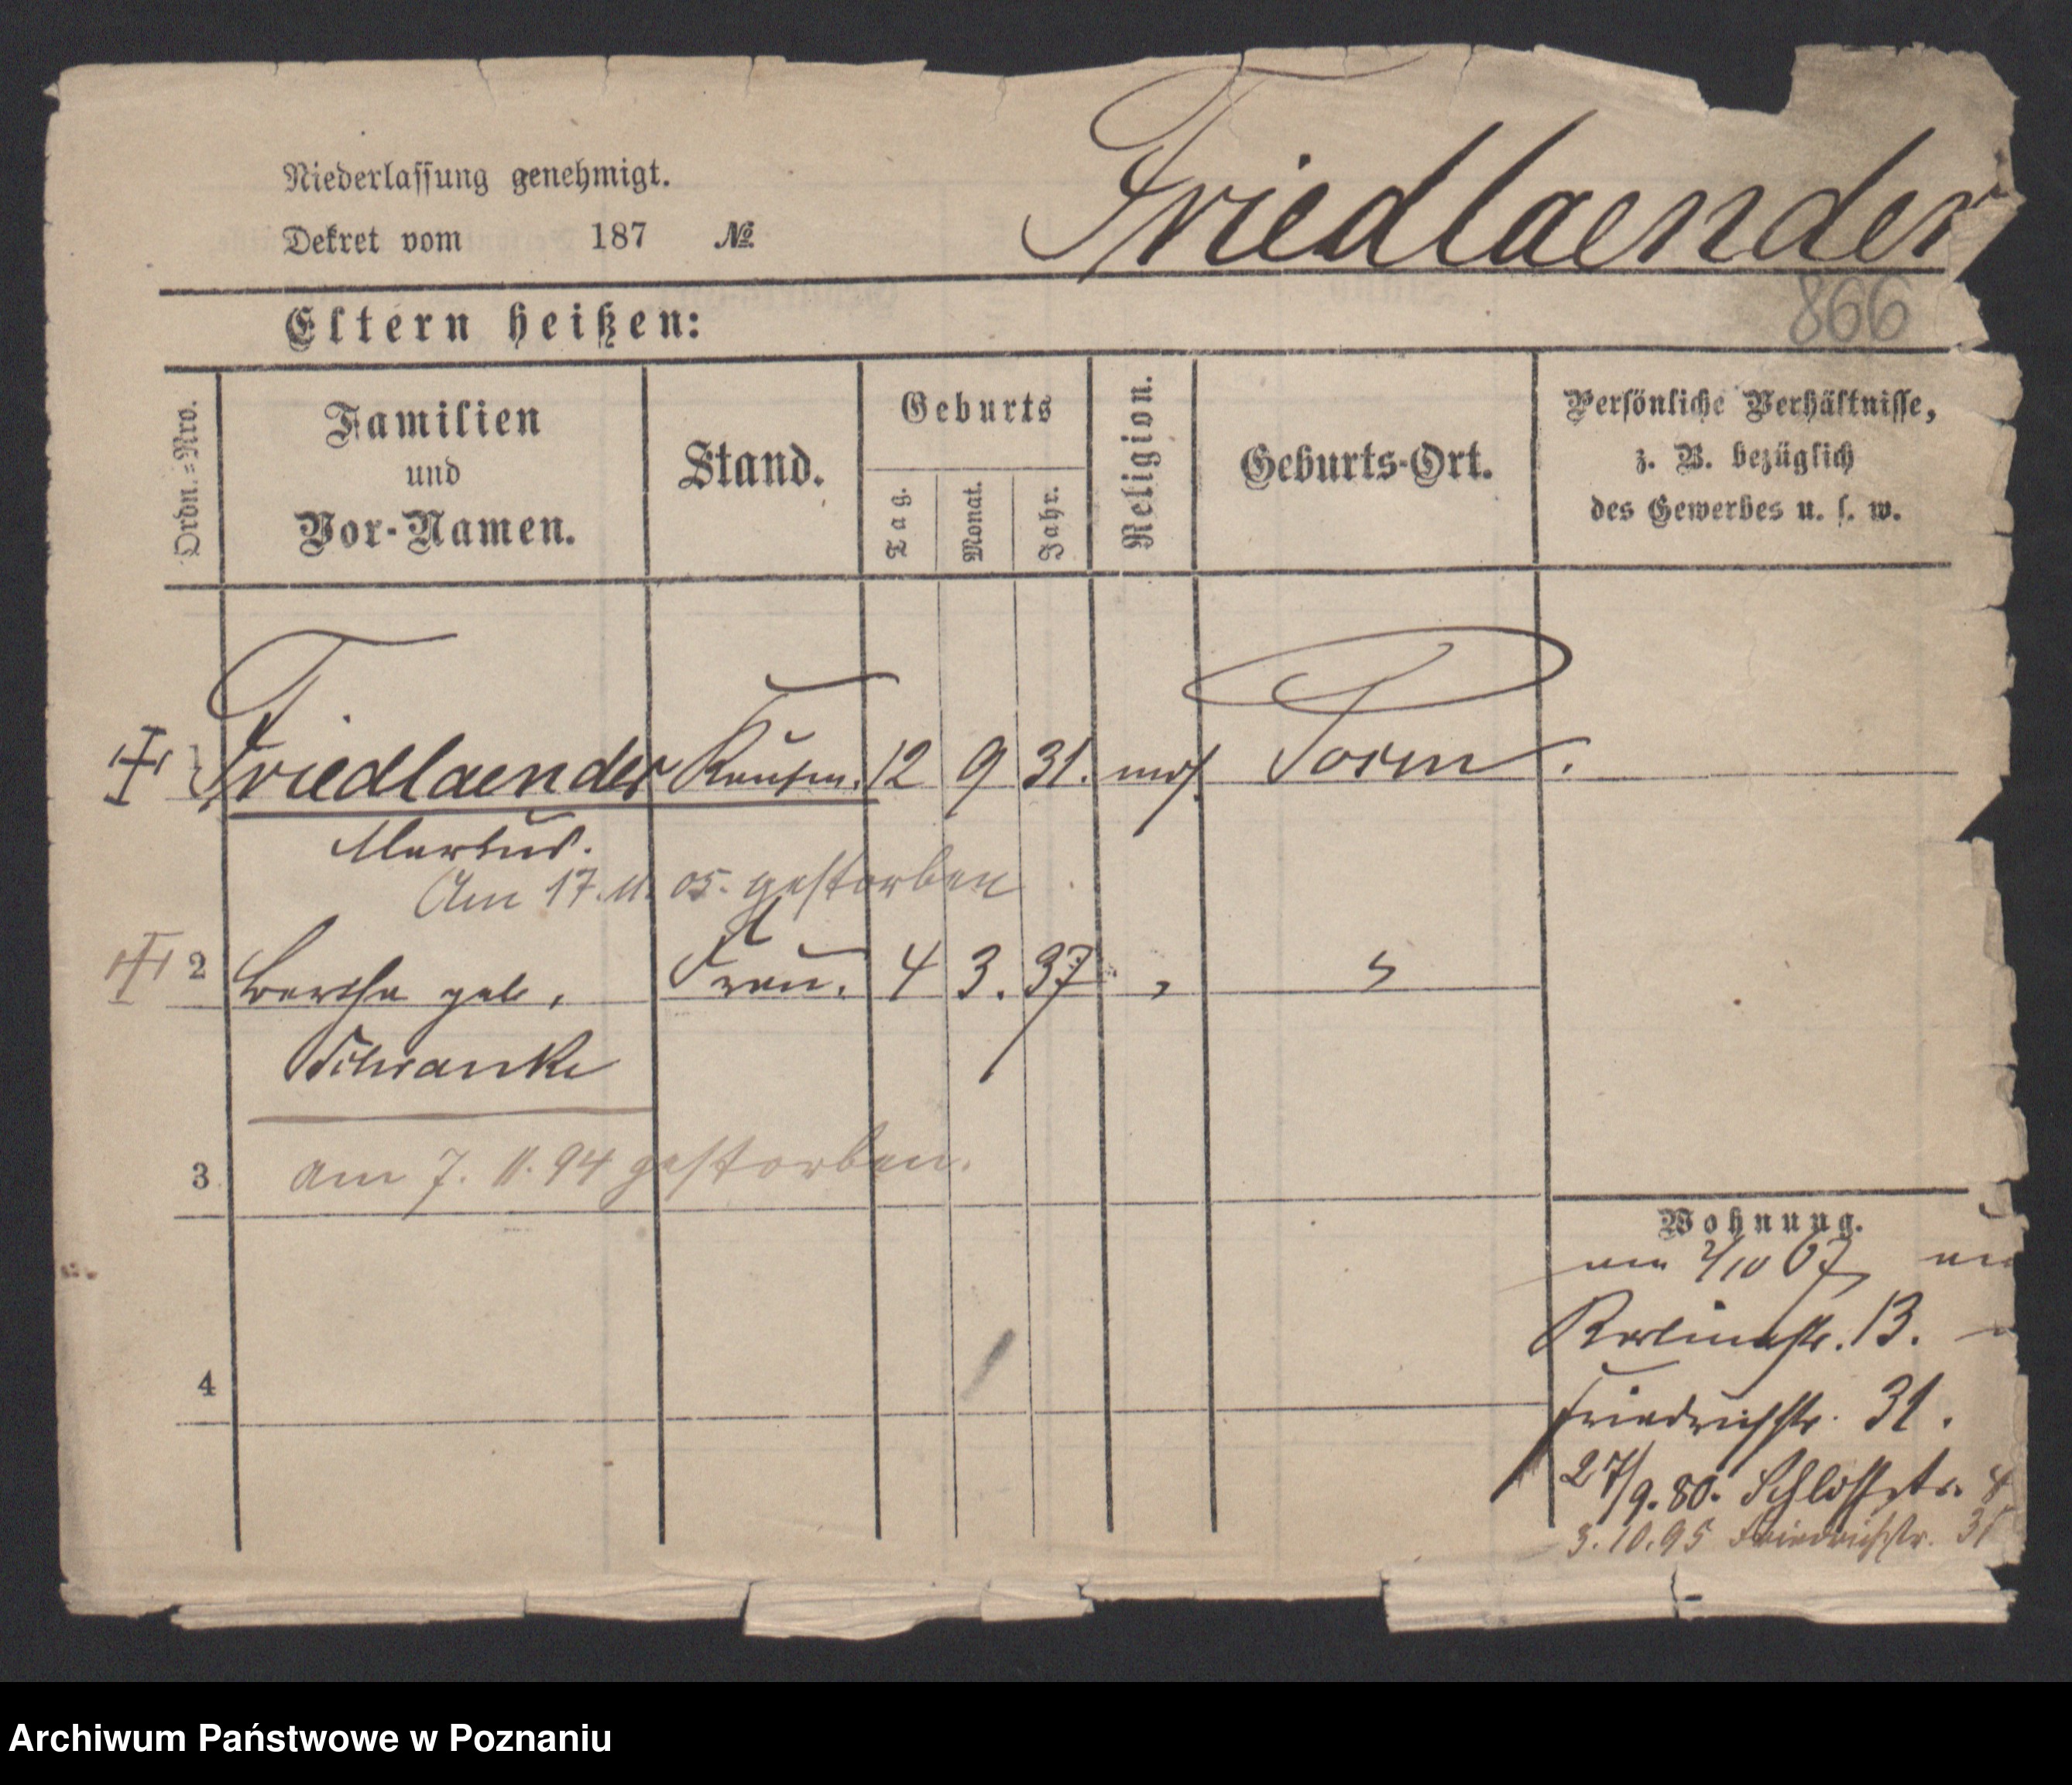 Friedlaender
Niederlassung genehmigt.
Dekret vom 187 №
866
Eltern heißen:
Ordn.=Nro.
Familien
und
Vor-Namen.
Stand.
Geburts
Tag.
Monat.
Jahr.
Religion.
Geburts-Ort.
Persönliche Verhältnisse,
z. B. bezüglich
des Gewerbes u. s. w.
1 Friedlaender Kaufm. 12 9 31. mos. Posen.
Markus.
Am 17. 11. 05. gestorben
2 Bertha geb. Frau. 4 3. 37 " "
Schwanke
3 am 7. 11. 94 gestorben.
4
Wohnung.
67
13.
Friedrichstr. 31.
27/9.80. Schloßstr. 4
3.10.95 Friedrichstr. 31
Archiwum Państwowe w Poznaniu